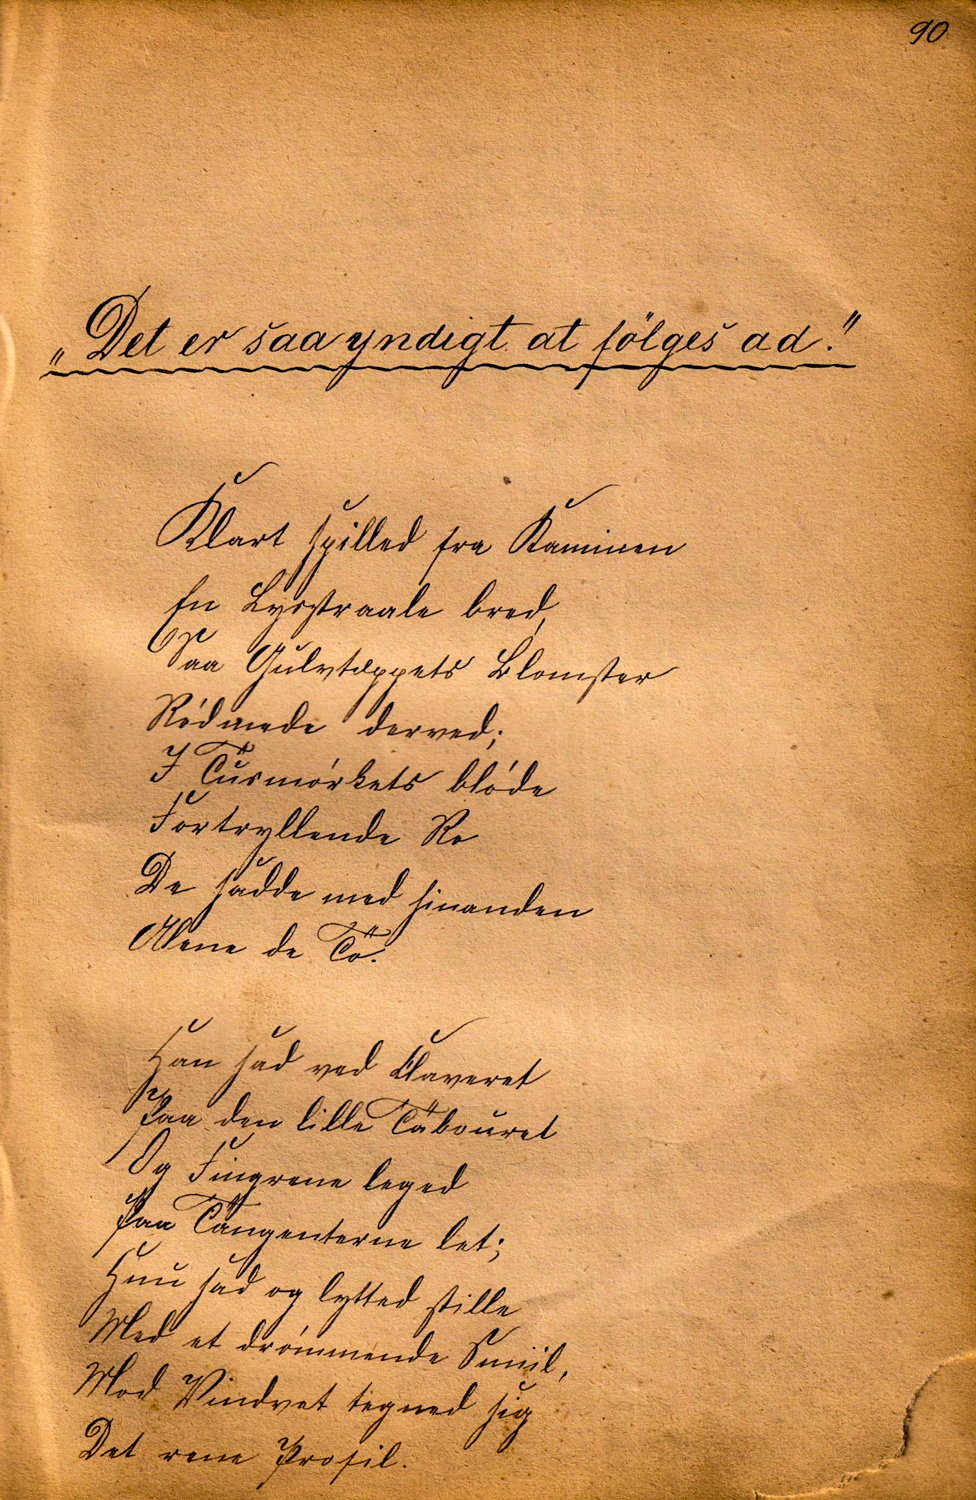 90
„Det er saa yndigt at fölges ad."
Klart spilled fra Kaminen
En Lysstraale bred,
Saa Gulvtæppets Blomster
Rødmede derved;
I Tusmørkets bløde
Fortryllende Ro
De sadde med hinanden
Alene de To.
Han sad ved Claveret
Paa den lille Tabouret
Og Fingrene leged
Paa Tangenterne let;
Hun sad og lytted stille
Med et drømmende Smil,
Mod Vinduet tegned sig
Det rene Profil.